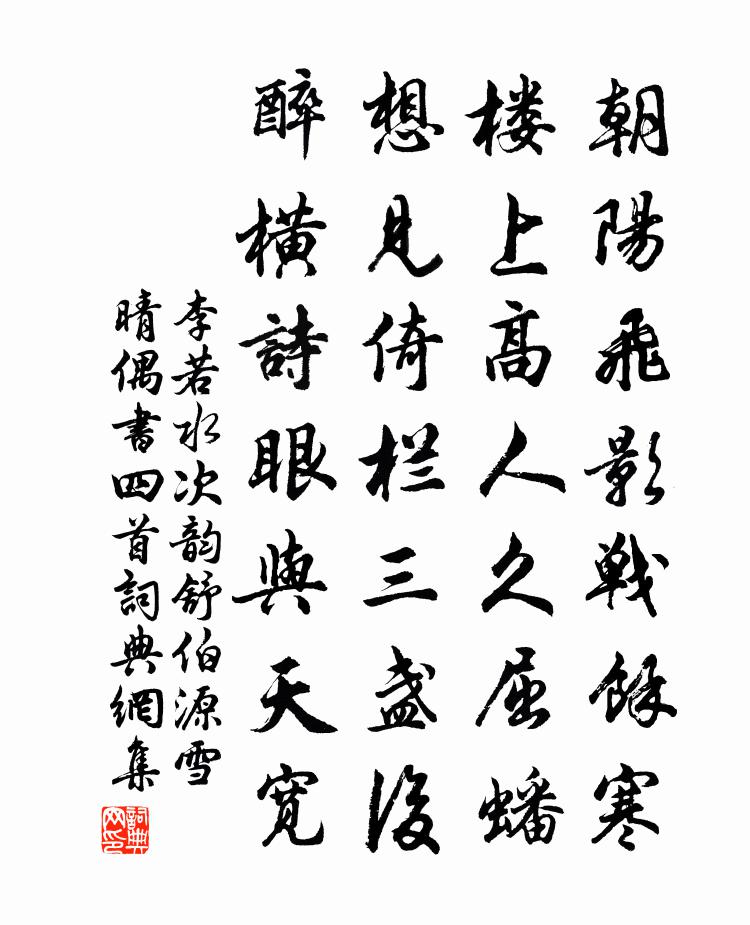 朝陽飛影戰餘寒
楼上高人久屈蟠
想見倚栏三盏後
醉橫詩眼與天寬
李若水次韵舒伯源雪
晴偶書四首詞典網集
詞典
网印